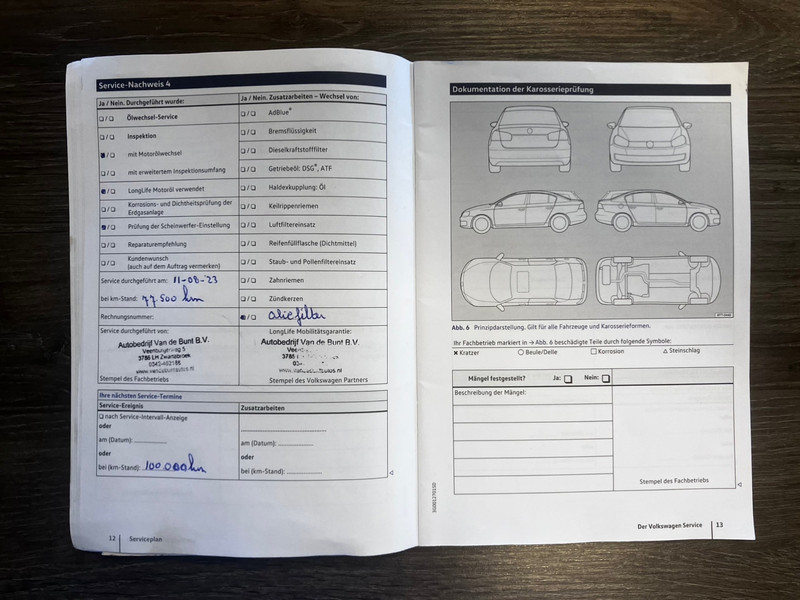 Service-Nachweis 4
Ja / Nein. Durchgeführt wurde:
Ja / Nein. Zusatzarbeiten – Wechsel von:
❑ / ❑ Ölwechsel-Service
❑ / ❑ AdBlue®
❑ / ❑ Inspektion
❑ / ❑ Bremsflüssigkeit
■ / ❑ mit Motorölwechsel
❑ / ❑ Dieselkraftstofffilter
❑ / ❑ mit erweitertem Inspektionsumfang
❑ / ❑ Getriebeöl: DSG®, ATF
■ / ❑ LongLife Motoröl verwendet
❑ / ❑ Haldexkupplung: Öl
❑ / ❑ Korrosions- und Dichtheitsprüfung der
Erdgasanlage
❑ / ❑ Keilrippenriemen
■ / ❑ Prüfung der Scheinwerfer-Einstellung
❑ / ❑ Luftfiltereinsatz
❑ / ❑ Reparaturempfehlung
❑ / ❑ Reifenfüllflasche (Dichtmittel)
❑ / ❑ Kundenwunsch
(auch auf dem Auftrag vermerken)
❑ / ❑ Staub- und Pollenfiltereinsatz
Service durchgeführt am: 11-08-'23
❑ / ❑ Zahnriemen
bei km-Stand: 77.500 km
❑ / ❑ Zündkerzen
Rechnungsnummer:
■ / ❑ oliefilter
Service durchgeführt von:
LongLife Mobilitätsgarantie:
Autobedrijf Van de Bunt B.V.
3785 LH Zwartebroek
Autobedrijf Van de Bunt B.V.
Stempel des Fachbetriebs
Stempel des Volkswagen Partners
Ihre nächsten Service-Termine
Service-Ereignis
Zusatzarbeiten
❑ nach Service-Intervall-Anzeige
oder
am (Datum):
oder
bei (km-Stand): 100.000 km
am (Datum):
oder
bei (km-Stand):
12 Serviceplan
Dokumentation der Karosserieprüfung
Abb. 6 Prinzipdarstellung. Gilt für alle Fahrzeuge und Karosserieformen.
Ihr Fachbetrieb markiert in → Abb. 6 beschädigte Teile durch folgende Symbole:
✖ Kratzer ○ Beule/Delle □ Korrosion △ Steinschlag
Mängel festgestellt? Ja: ❑ Nein: ❑
Beschreibung der Mängel:
Stempel des Fachbetriebs
Der Volkswagen Service 13